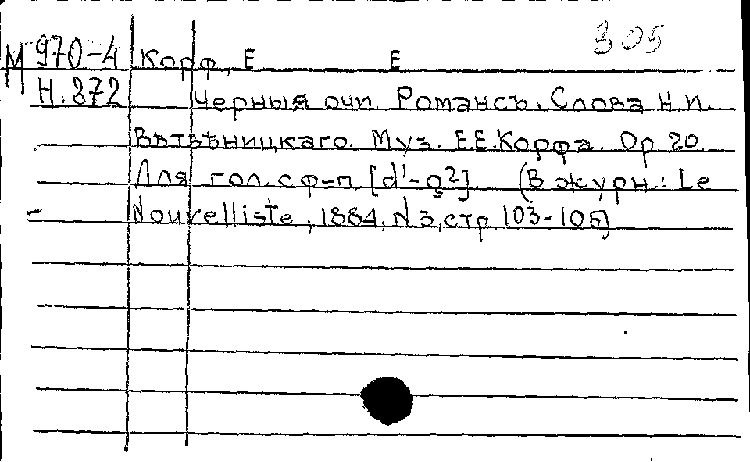 305
М 970-4 Корф, Е Е
Н.872 Черныя очи Романсъ. Слова Н.И.
Вѣтвѣницкаго. Муз. Е.Е.Корфа. Ор 20.
Для гол. с ф-п. [d'-g²] (В журн: Le
Nouvelliste, 1884, N 3, стр 103-105)